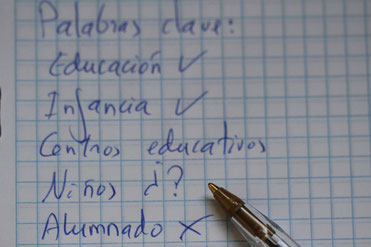 Palabras clave:
Educación ✓
Infancia ✓
Centros educativos
Niños ¿?
Alumnado ✗